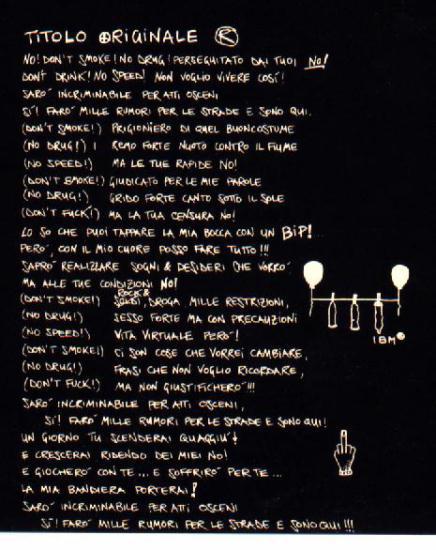 TITOLO ORIGINALE R
NO! DON'T SMOKE! NO DRUG! PERSEGUITATO DAI TUOI NO!
DON'T DRINK! NO SPEED! NON VOGLIO VIVERE COSÍ!
SARO' INCRIMINABILE PER ATTI OSCENI
SI'! FARO' MILLE RUMORI PER LE STRADE E SONO QUI.
(DON'T SMOKE!) PRIGIONIERO DI QUEL BUONCOSTUME
(NO DRUG!) I REMO FORTE NUOTO CONTRO IL FIUME
(NO SPEED!) MA LE TUE RAPIDE NO!
(DON'T SMOKE!) GIUDICATO PER LE MIE PAROLE
(NO DRUG!) GRIDO FORTE CANTO SOTTO IL SOLE
(DON'T FUCK!) MA LA TUA CENSURA NO!
LO SO CHE PUOI TAPPARE LA MIA BOCCA CON UN BIP!
PERO', CON IL MIO CUORE POSSO FARE TUTTO!!!
SAPRO' REALIZZARE SOGNI & DESIDERI CHE VORRO'
MA ALLE TUE CONDIZIONI NO!
(DON'T SMOKE!) ROCK & SOLDI, DROGA, MILLE RESTRIZIONI,
(NO DRUG!) SESSO FORTE MA CON PRECAUZIONI
(NO SPEED!) VITA VIRTUALE PERO'!
IBM
(DON'T SMOKE!) CI SON COSE CHE VORREI CAMBIARE,
(NO DRUG!) FRASI CHE NON VOGLIO RICORDARE,
(DON'T FUCK!) MA NON GIUSTIFICHERO'!!!
SARO' INCRIMINABILE PER ATTI OSCENI,
SI'! FARO' MILLE RUMORI PER LE STRADE E SONO QUI!
UN GIORNO TU SCENDERAI QUAGGIU'!
E CRESCERAI RIDENDO DEI MIEI NO!
E GIOCHERO' CON TE... E SOFFRIRO' PER TE...
LA MIA BANDIERA PORTERAI!
SARO' INCRIMINABILE PER ATTI OSCENI
SI'! FARO' MILLE RUMORI PER LE STRADE E SONO QUI!!!